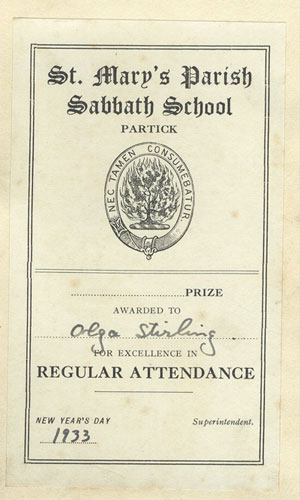 St. Mary's Parish
Sabbath School
PARTICK
NEC TAMEN CONSUMEBATUR
PRIZE
AWARDED TO
Olga Stirling
FOR EXCELLENCE IN
REGULAR ATTENDANCE
NEW YEAR'S DAY
Superintendent.
1933